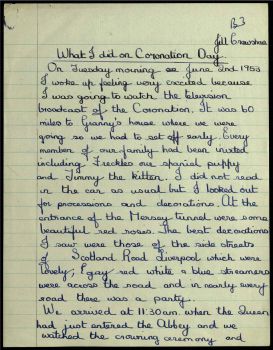 B3
Jill Crawshaw
What I did on Coronation Day.
On Tuesday morning June 2nd 1953
I woke up feeling very excited because
I was going to watch the television
broadcast of the Coronation. It was 60
miles to Granny's house where we were
going so we had to set off early. Every
member of our family had been invited
including Freckles our spaniel puppy
and Timmy the kitten. I did not read
in the car as usual but I looked out
for processions and decorations. At the
entrance of the Mersey tunnel were some
beautiful red roses. The best decorations
I saw were those of the side streets
of Scotland Road Liverpool which were
lovely; gay red white & blue streamers
were across the road and in nearly every
road there was a party.
We arrived at 11:30am. when the Queen
had just entered the Abbey and we
watched the crowning ceremony and